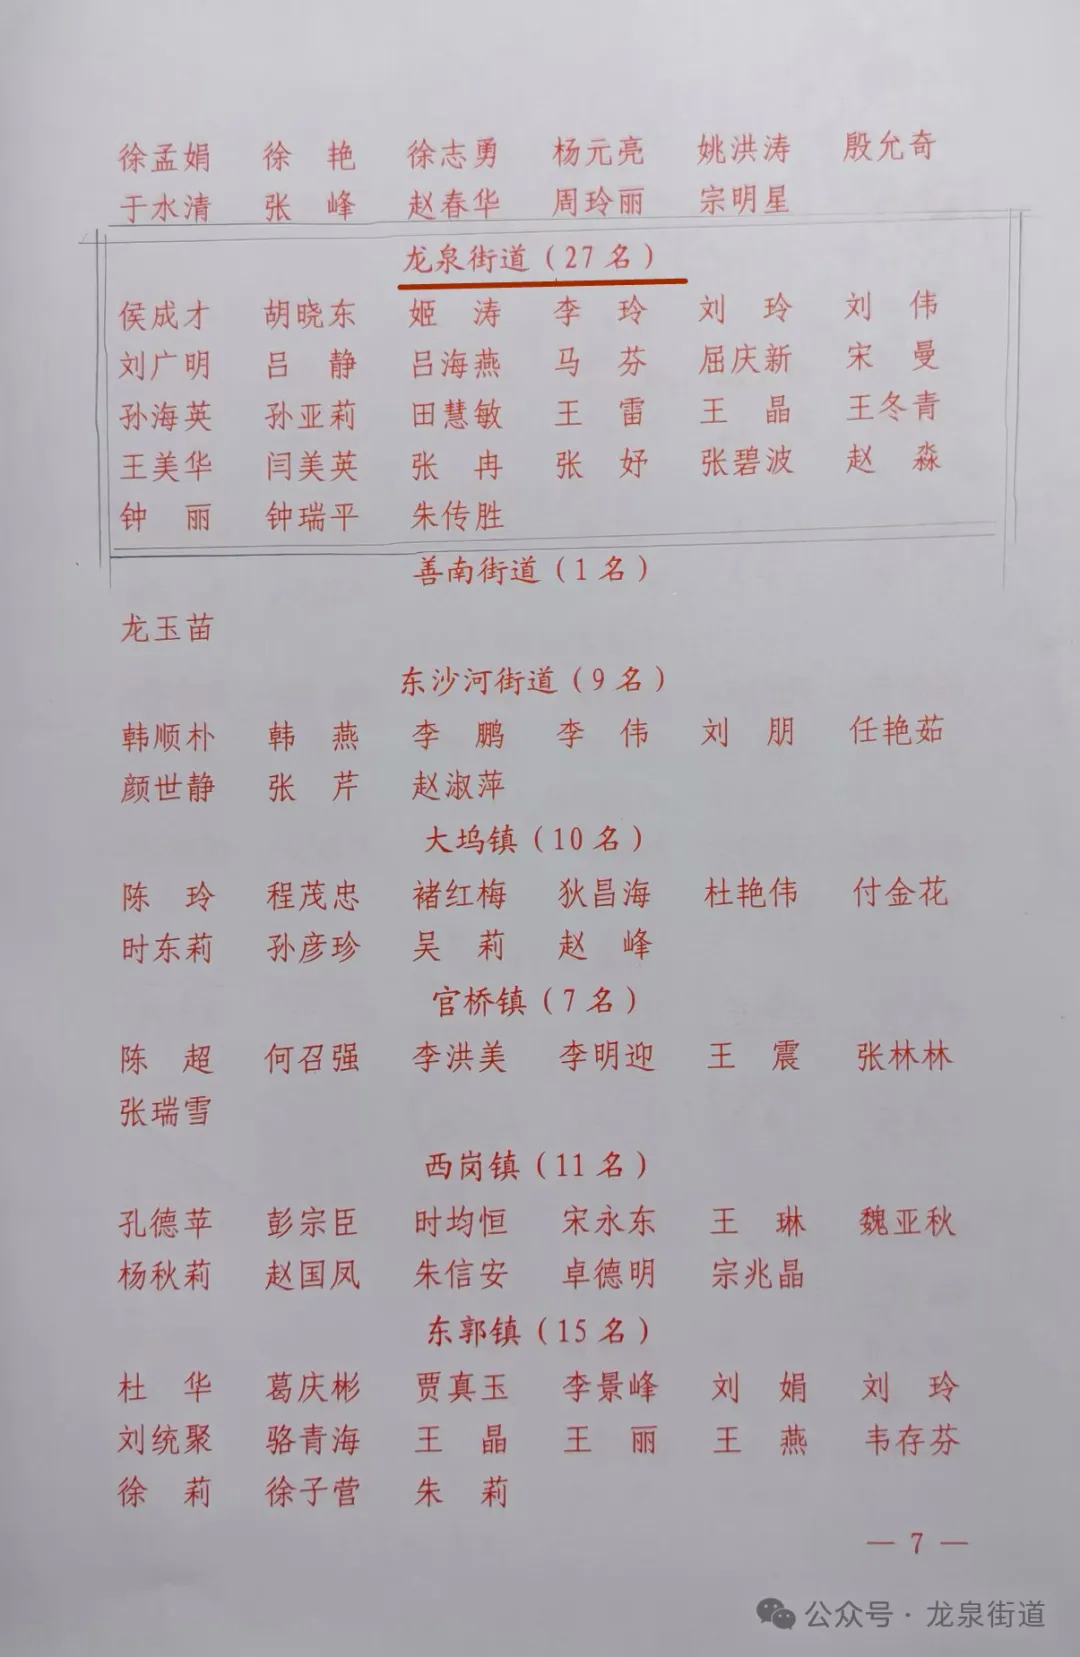 徐孟娟 徐艳 徐志勇 杨元亮 姚洪涛 殷允奇
于水清 张峰 赵春华 周玲丽 宗明星
龙泉街道（27名）
侯成才 胡晓东 姬涛 李玲 刘玲 刘伟
刘广明 吕静 吕海燕 马芬 屈庆新 宋曼
孙海英 孙亚莉 田慧敏 王雷 王晶 王冬青
王美华 闫美英 张冉 张妤 张碧波 赵淼
钟丽 钟瑞平 朱传胜
善南街道（1名）
龙玉苗
东沙河街道（9名）
韩顺朴 韩燕 李鹏 李伟 刘朋 任艳茹
颜世静 张芹 赵淑萍
大坞镇（10名）
陈玲 程茂忠 褚红梅 狄昌海 杜艳伟 付金花
时东莉 孙彦珍 吴莉 赵峰
官桥镇（7名）
陈超 何召强 李洪美 李明迎 王震 张林林
张瑞雪
西岗镇（11名）
孔德苹 彭宗臣 时均恒 宋永东 王琳 魏亚秋
杨秋莉 赵国凤 朱信安 卓德明 宗兆晶
东郭镇（15名）
杜华 葛庆彬 贾真玉 李景峰 刘娟 刘玲
刘统聚 骆青海 王晶 王丽 王燕 韦存芬
徐莉 徐子营 朱莉
— 7 —
公众号·龙泉街道